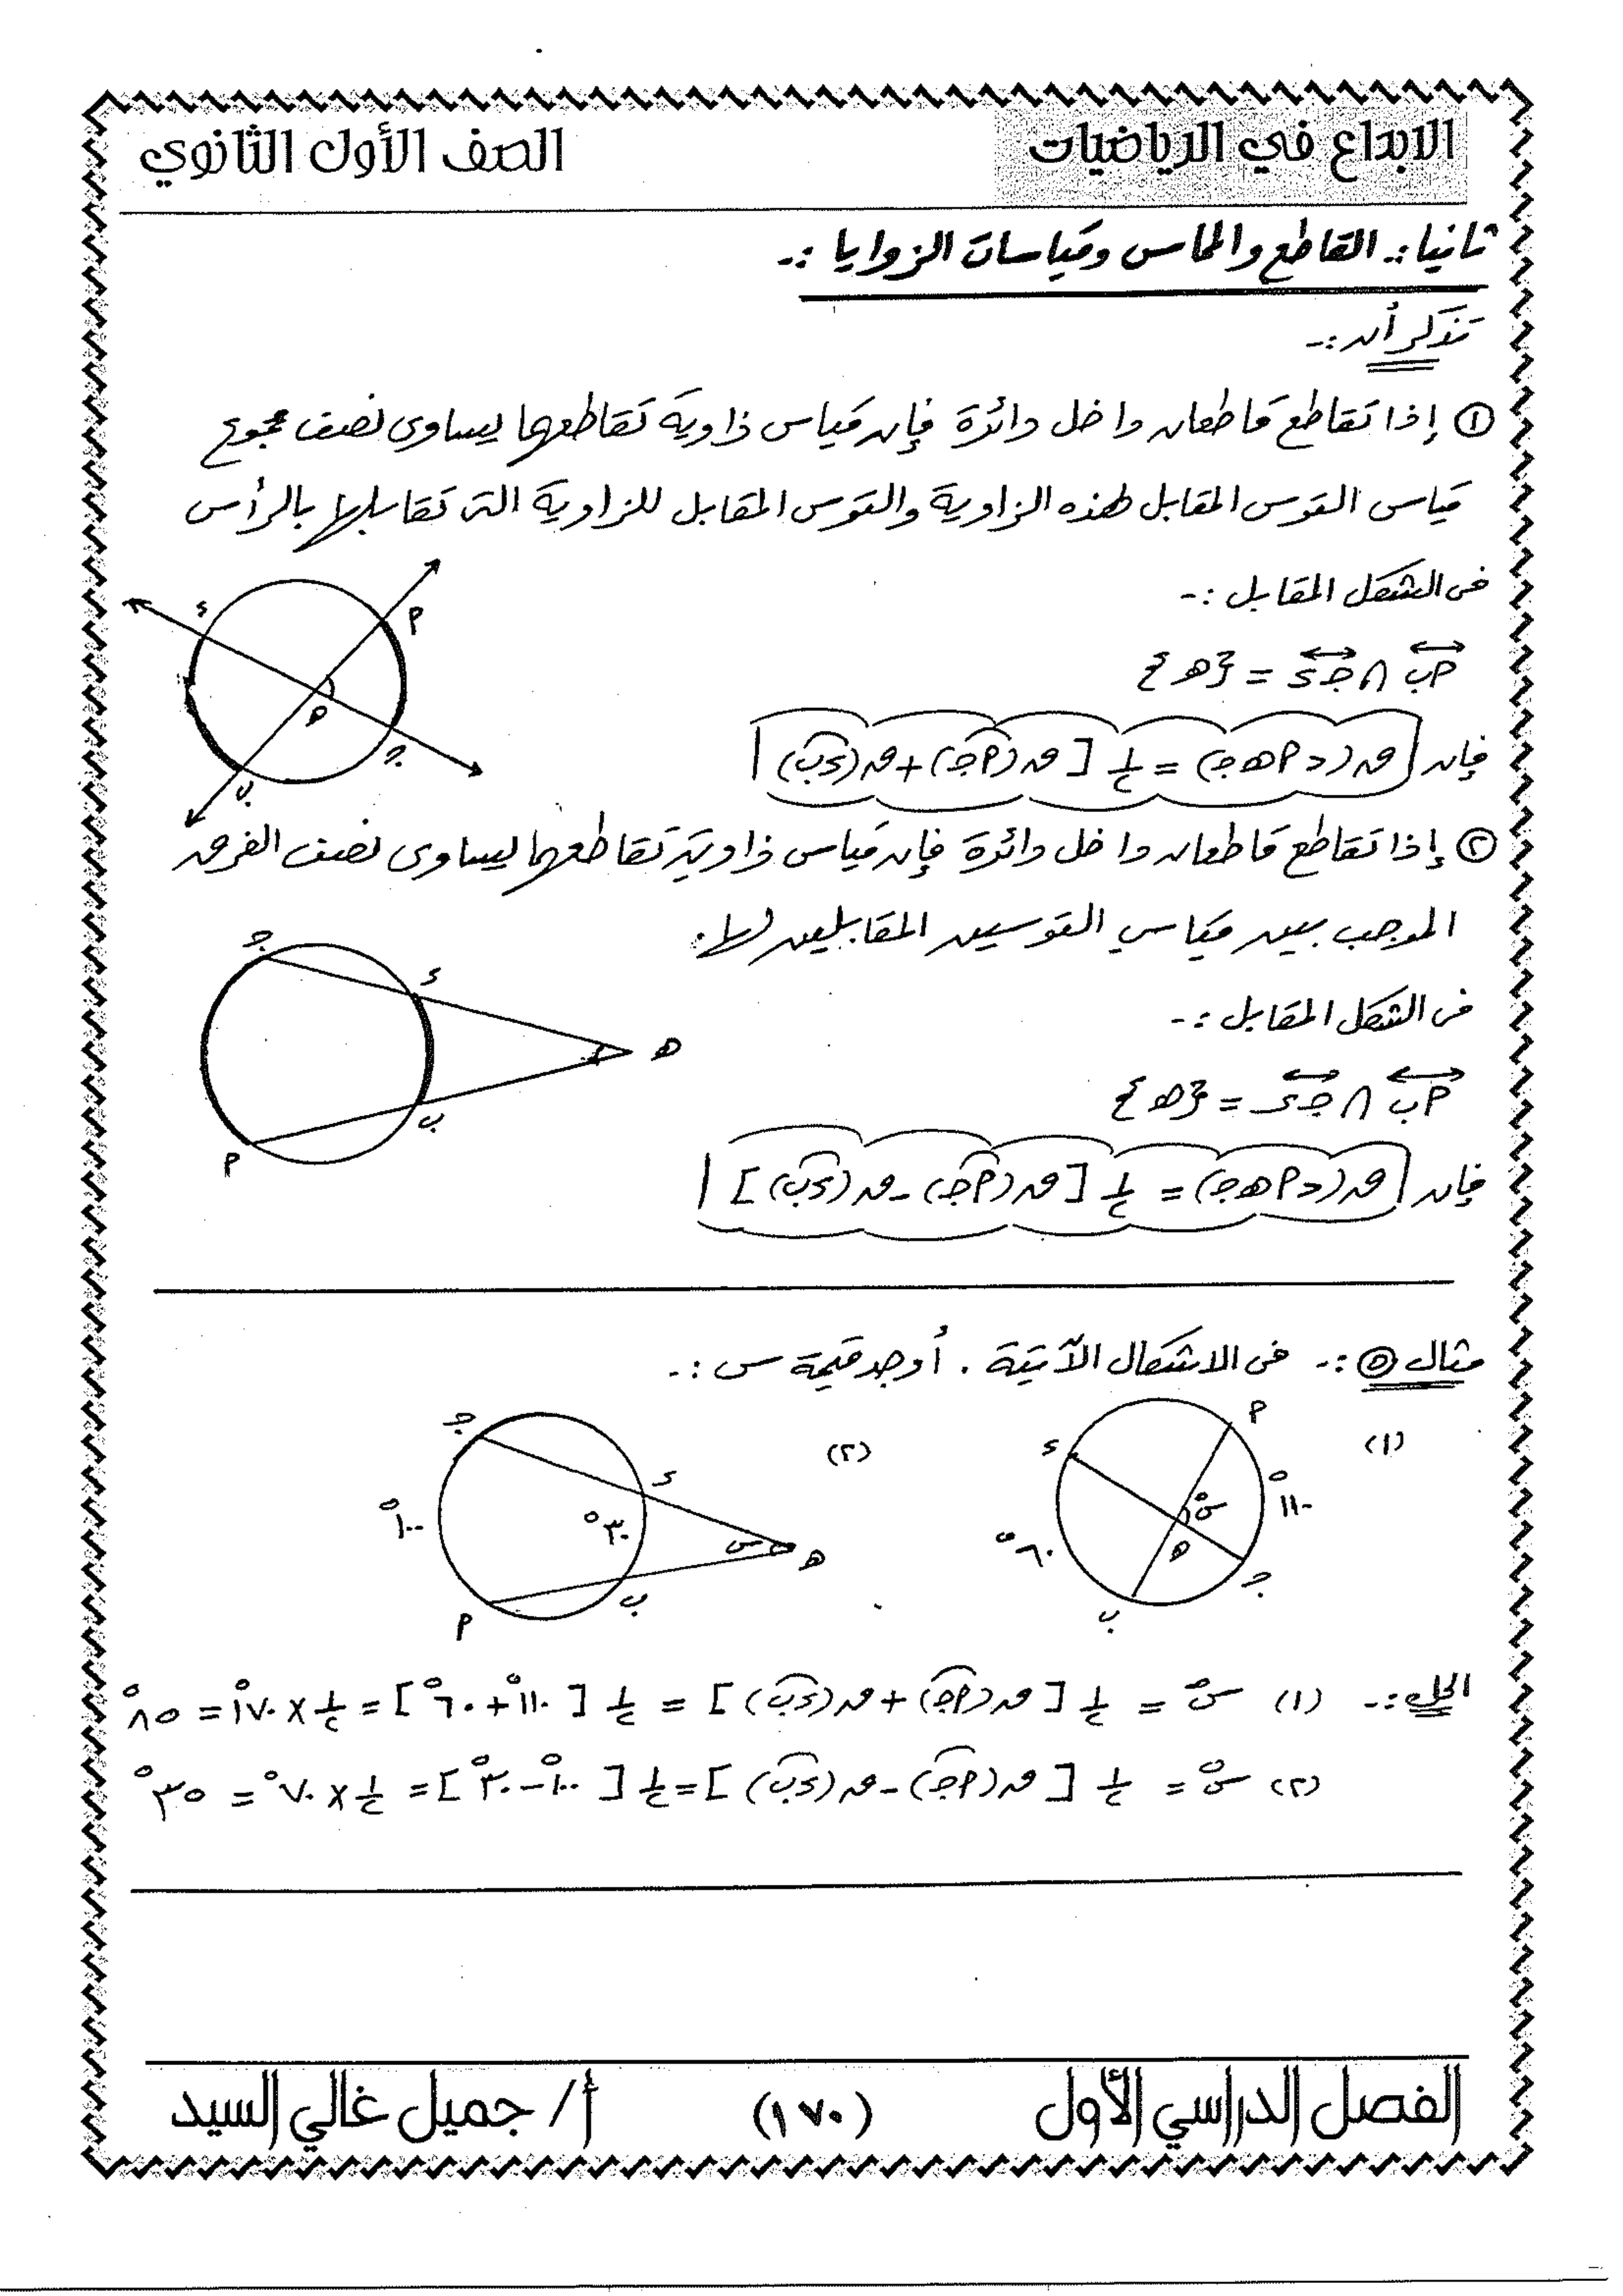 الابداع في الرياضيات
الصف الأول الثانوي
ثانيا :- القاطع والمماس وقياسات الزوايا :-
تذكر أن :-
① إذا تقاطع قاطعان داخل دائرة فإن قياس زاوية تقاطعهما يساوى نصف مجموع
قياس القوس المقابل لهذه الزاوية والقوس المقابل للزاوية التى تقابلها بالرأس
فى الشكل المقابل :-
أب ∩ جـ د = {هـ}
فإن ق(> أ هـ جـ) = ١/٢ [ ق(أجـ) + ق(دب)
أ
د
هـ
جـ
ب
② إذا تقاطع قاطعان داخل دائرة فإن قياس زاوية تقاطعهما يساوى نصف الفرق
الموجب بين قياسي القوسين المقابلين لها.
فى الشكل المقابل :-
أب ∩ جـ د = {هـ}
فإن ق(> أ هـ جـ) = ١/٢ [ ق(أجـ) - ق(دب) ]
جـ
د
هـ
ب
أ
مثال ⑤ :- فى الاشكال الآتية . أوجد قيمة س :-
(١)
أ
د
١١٠°
س°
٦٠°
هـ
جـ
ب
(٢)
جـ
د
١٠٠°
٣٠°
س
هـ
ب
أ
الحل :- (١) س° = ١/٢ [ ق(أجـ) + ق(دب) ] = ١/٢ [ ١١٠° + ٦٠° ] = ١/٢ × ١٧٠° = ٨٥°
(٢) س° = ١/٢ [ ق(أجـ) - ق(دب) ] = ١/٢ [ ١٠٠° - ٣٠° ] = ١/٢ × ٧٠° = ٣٥°
الفصل الدراسي الأول
(١٧٠)
أ/ جميل غالي السيد